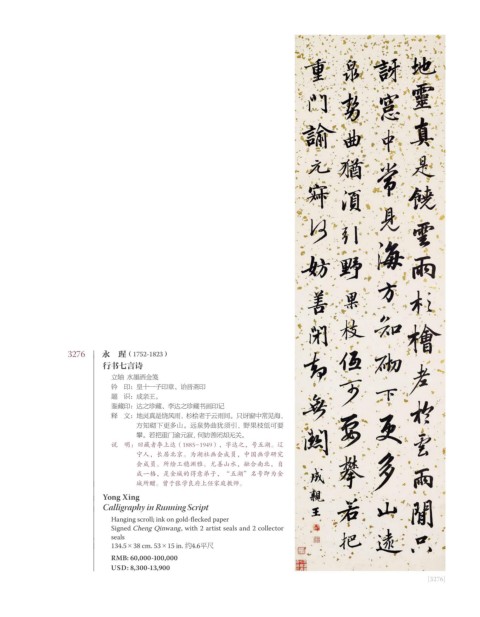 地靈真是饒雲雨杉檜老於雲雨閒只
訝窓中常見海方知砌下更多山遠
泉勢曲猶須引野果枝低可要攀若把
重門諭元寂何妨善閉却無關
成親王
3276
永 瑆（1752-1823）
行书七言诗
立轴 水墨洒金笺
钤 印：皇十一子印章、诒晋斋印
题 识：成亲王。
鉴藏印：达之珍藏、李达之珍藏书画印记
释 文：地灵真是饶风雨，杉桧老于云雨间。只讶窗中常见海，
方知砌下更多山。远泉势曲犹须引，野果枝低可要
攀。若把重门谕元寂，何妨善闭却无关。
说 明：旧藏者李上达（1885-1949），字达之，号五湖。辽
宁人，长居北京。为湖社画会成员，中国画学研究
会成员。所绘工稳渊雅。尤善山水，融合南北，自
成一格，是金城的得意弟子，“五湖”其号即为金
城所赐。曾于张学良府上任家庭教师。
Yong Xing
Calligraphy in Running Script
Hanging scroll; ink on gold-flecked paper
Signed Cheng Qinwang, with 2 artist seals and 2 collector
seals
134.5 × 38 cm. 53 × 15 in. 约4.6平尺
RMB: 60,000-100,000
USD: 8,300-13,900
[3276]